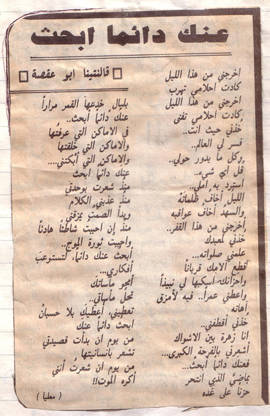 عنك دائما ابحث
قالنتينا ابو عقصة
اخرجني من هذا الليل
كادت احلامي تهرب
اخرجني من هذا الليل
كادت احلامي تفنى
خذني حيث انت..
فسر لي العالم..
وكل ما يدور حولي..
قل أي شيء..
استرد به املي..
الليل أخاف ظلماته
والسهد أخاف عواقبه
اخرجني من هذا القفر..
خذني لمعبدك
علمني صلواته..
قطع الامك قربانا
واحزانك اسكبها لي نبيذا
واعطني عمراً.. فيه لامزق
آهاته
خذني أقطفني..
انا زهرة بين الاشواك
أشعرني بالفرحة الكبرى...
فعنك دائماً ابحث..
بماضيَّ الذي انتحر
حزناً على غده
بليال خدعها القمر مراراً
عنك دائماً ابحث..
في الاماكن التي عرفتها
والاماكن التي خلقتها
والاماكن التي أبكتني...
عنك دائماً ابحث
منذ شعرت بوحدتي
منذ عذبني الكلام
وبدأ الصمت يمزقني
منذ إن احببت شاطئا هادئاً
واحببت ثورة الموج..
ابحث عنك دائماً، لتستوعب
أفكاري...
أتحمل مأساتك
تحمل مأساتي..
تعطيني اعطيك بلا حسبان
ابحث دائماً عنك
من يوم ان بدأت قصيدتي
تشعر بانسانيتها،
من يوم ان شعرت أنني
أكره الموت!!
( معليا )